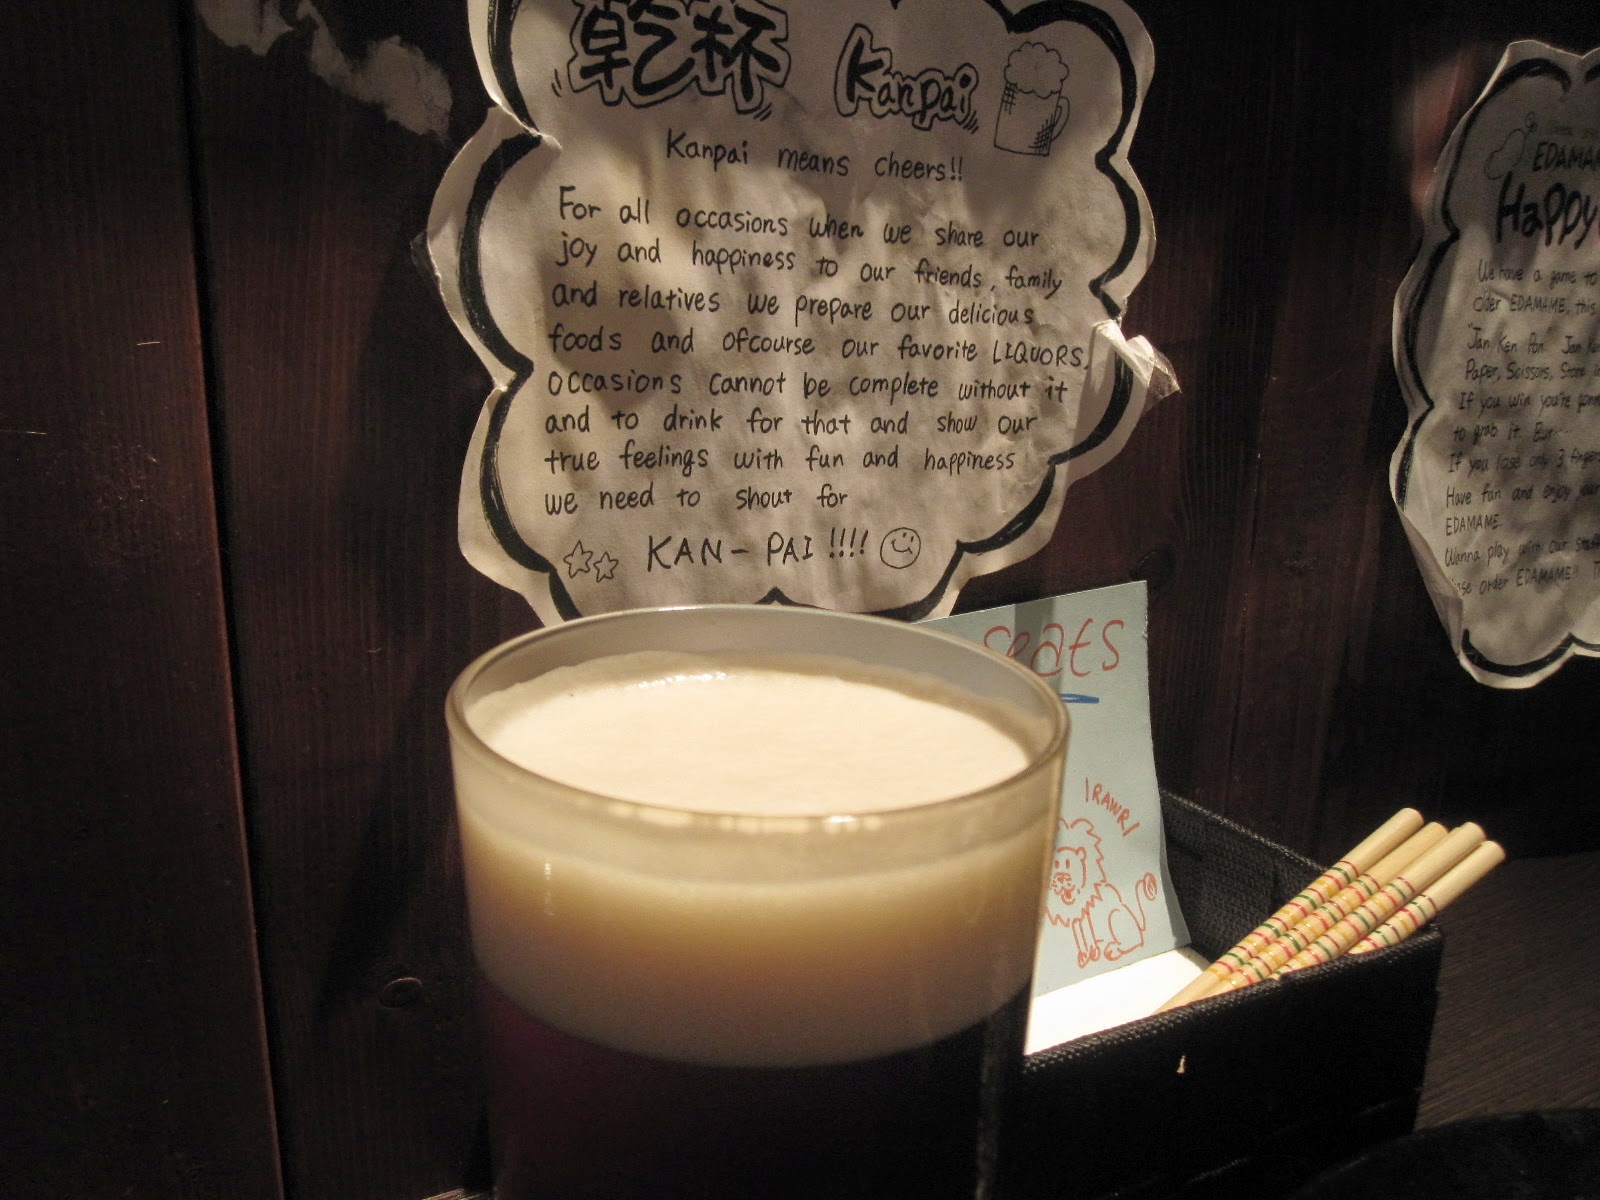 乾杯 Kanpai
Kanpai means cheers!!
For all occasions when we share our
joy and happiness to our friends, family
and relatives we prepare our delicious
foods and ofcourse our favorite LIQUORS,
occasions cannot be complete without it
and to drink for that and show our
true feelings with fun and happiness
we need to shout for
KAN-PAI !!!!
seats
!RAWR!
EDAMA
Happy
We have a game to
order EDAMAME, this
"Jan Ken Pon. Jan
Paper, Scissors,
If you win you're
to grab it. But...
If you lose only 3 finger
Have fun and enjoy your
EDAMAME.
Wanna play with our
order EDAMAME!!